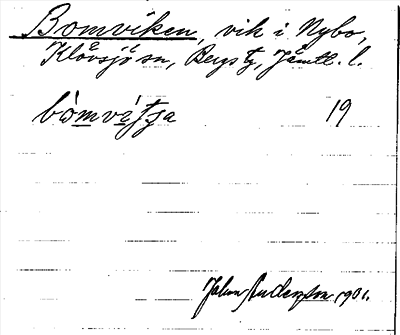 Bomviken, vik i Nybo,
Klövsjö sn, Bergs tg, Jämtl. l.
bòmvìtja 19
Johan Anderzon 1901.